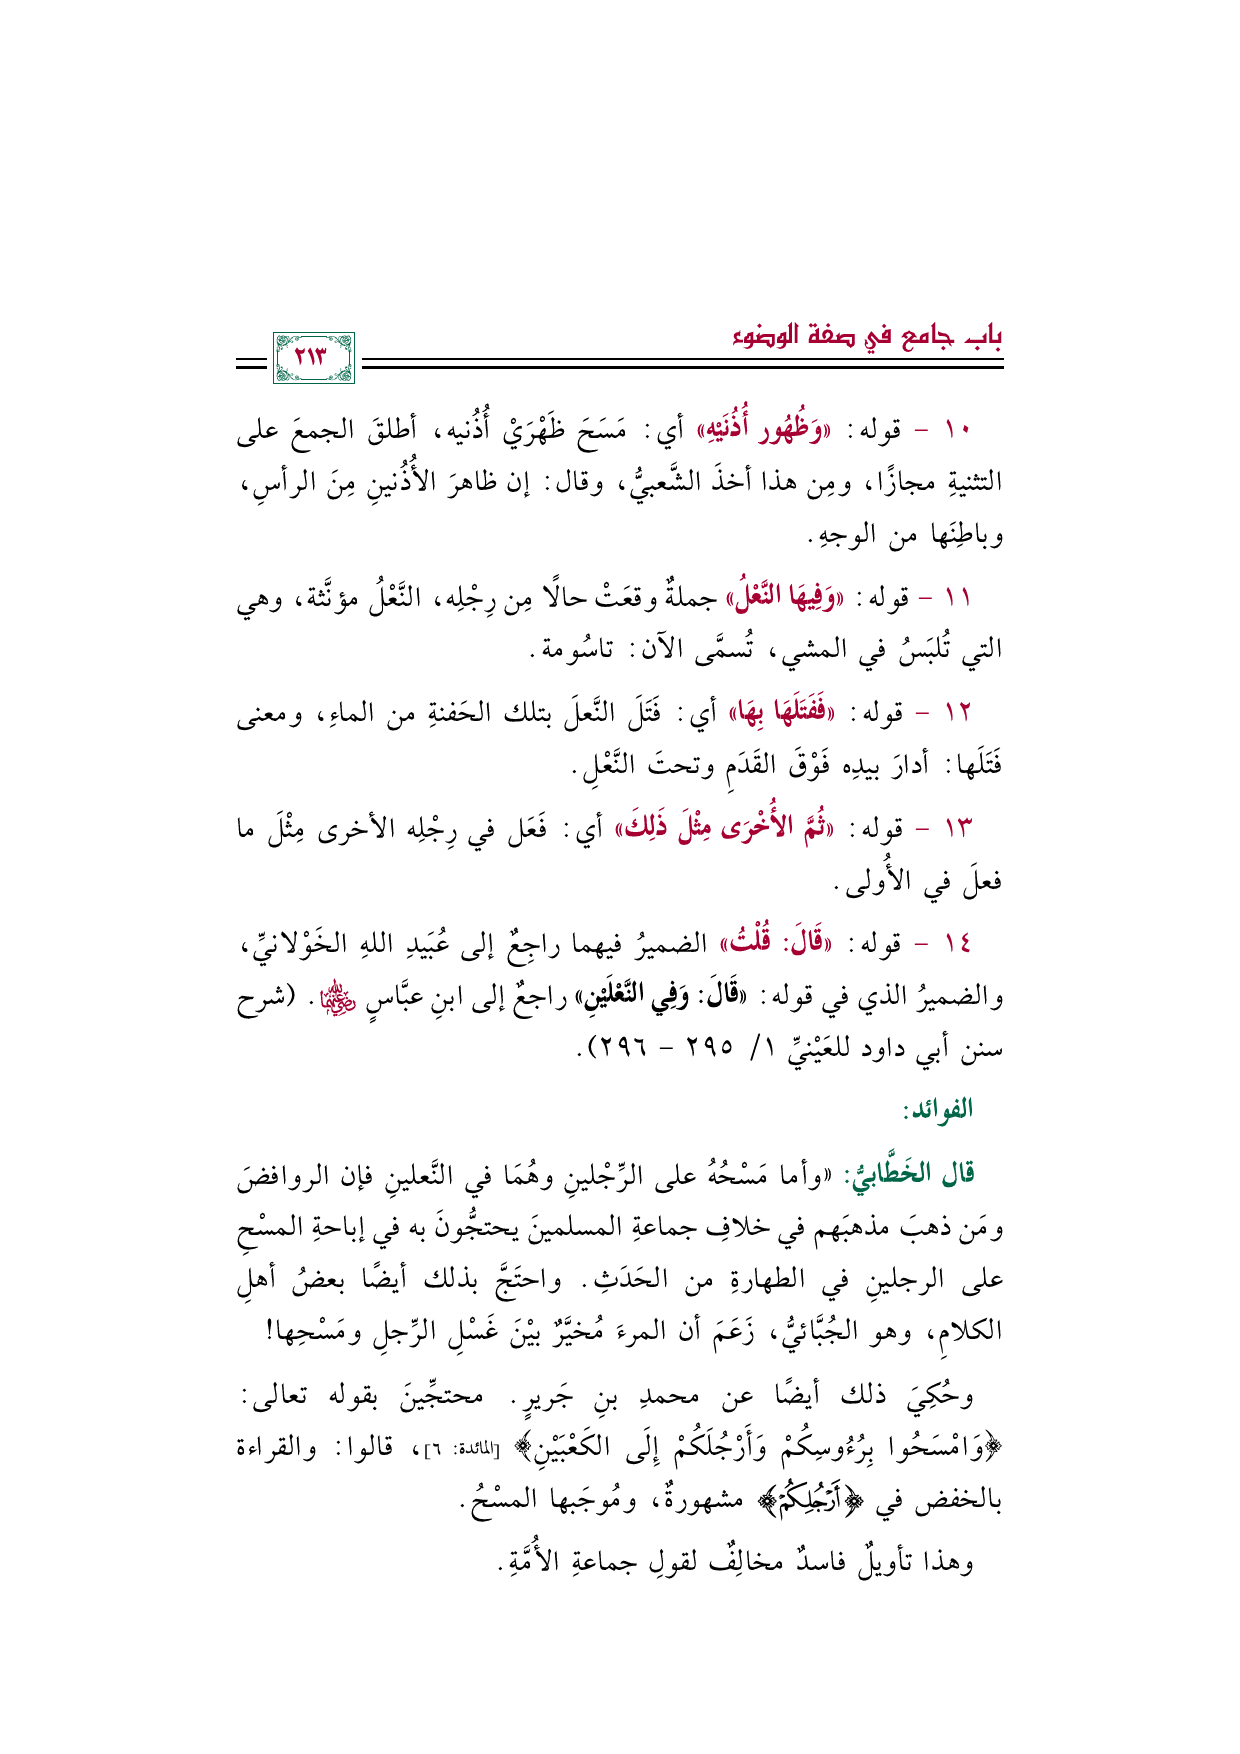 باب جامع في صفة الوضوء
٢١٣
١٠ – قوله: «وَظُهُور أُذُنَيْهِ» أي: مَسَحَ ظَهْرَيْ أُذُنيه، أطلقَ الجمعَ على
التثنيةِ مجازًا، ومِن هذا أخذَ الشَّعبيُّ، وقال: إن ظاهرَ الأُذُنينِ مِنَ الرأسِ،
وباطِنَها من الوجهِ.
١١ – قوله: «وَفِيهَا النَّعْلُ» جملةٌ وقعَتْ حالًا مِن رِجْلِه، النَّعْلُ مؤنَّثة، وهي
التي تُلبَسُ في المشي، تُسمَّى الآن: تاسُومة.
١٢ – قوله: «فَفَتَلَهَا بِهَا» أي: فَتَلَ النَّعلَ بتلك الحَفنةِ من الماءِ، ومعنى
فَتَلَها: أدارَ بيدِه فَوْقَ القَدَمِ وتحتَ النَّعْلِ.
١٣ – قوله: «ثُمَّ الأُخْرَى مِثْلَ ذَلِكَ» أي: فَعَل في رِجْلِه الأخرى مِثْلَ ما
فعلَ في الأُولى.
١٤ – قوله: «قَالَ: قُلْتُ» الضميرُ فيهما راجِعٌ إلى عُبَيدِ اللهِ الخَوْلانيِّ،
والضميرُ الذي في قوله: «قَالَ: وَفِي النَّعْلَيْنِ» راجعٌ إلى ابنِ عبَّاسٍ رضي الله عنهما. (شرح
سنن أبي داود للعَيْنيِّ ١/ ٢٩٥ – ٢٩٦).
الفوائد:
قال الخَطَّابيُّ: «وأما مَسْحُهُ على الرِّجْلينِ وهُمَا في النَّعلينِ فإن الروافضَ
ومَن ذهبَ مذهبَهم في خلافِ جماعةِ المسلمينَ يحتجُّونَ به في إباحةِ المسْحِ
على الرجلينِ في الطهارةِ من الحَدَثِ. واحتَجَّ بذلك أيضًا بعضُ أهلِ
الكلامِ، وهو الجُبَّائيُّ، زَعَمَ أن المرءَ مُخيَّرٌ بيْنَ غَسْلِ الرِّجلِ ومَسْحِها!
وحُكِيَ ذلك أيضًا عن محمدِ بنِ جَريرٍ. محتجِّينَ بقوله تعالى:
﴿وَامْسَحُوا بِرُءُوسِكُمْ وَأَرْجُلَكُمْ إِلَى الكَعْبَيْنِ﴾ [المائدة: ٦]، قالوا: والقراءة
بالخفض في ﴿أَرْجُلِكُمْ﴾ مشهورةٌ، ومُوجَبها المسْحُ.
وهذا تأويلٌ فاسدٌ مخالِفٌ لقولِ جماعةِ الأُمَّةِ.